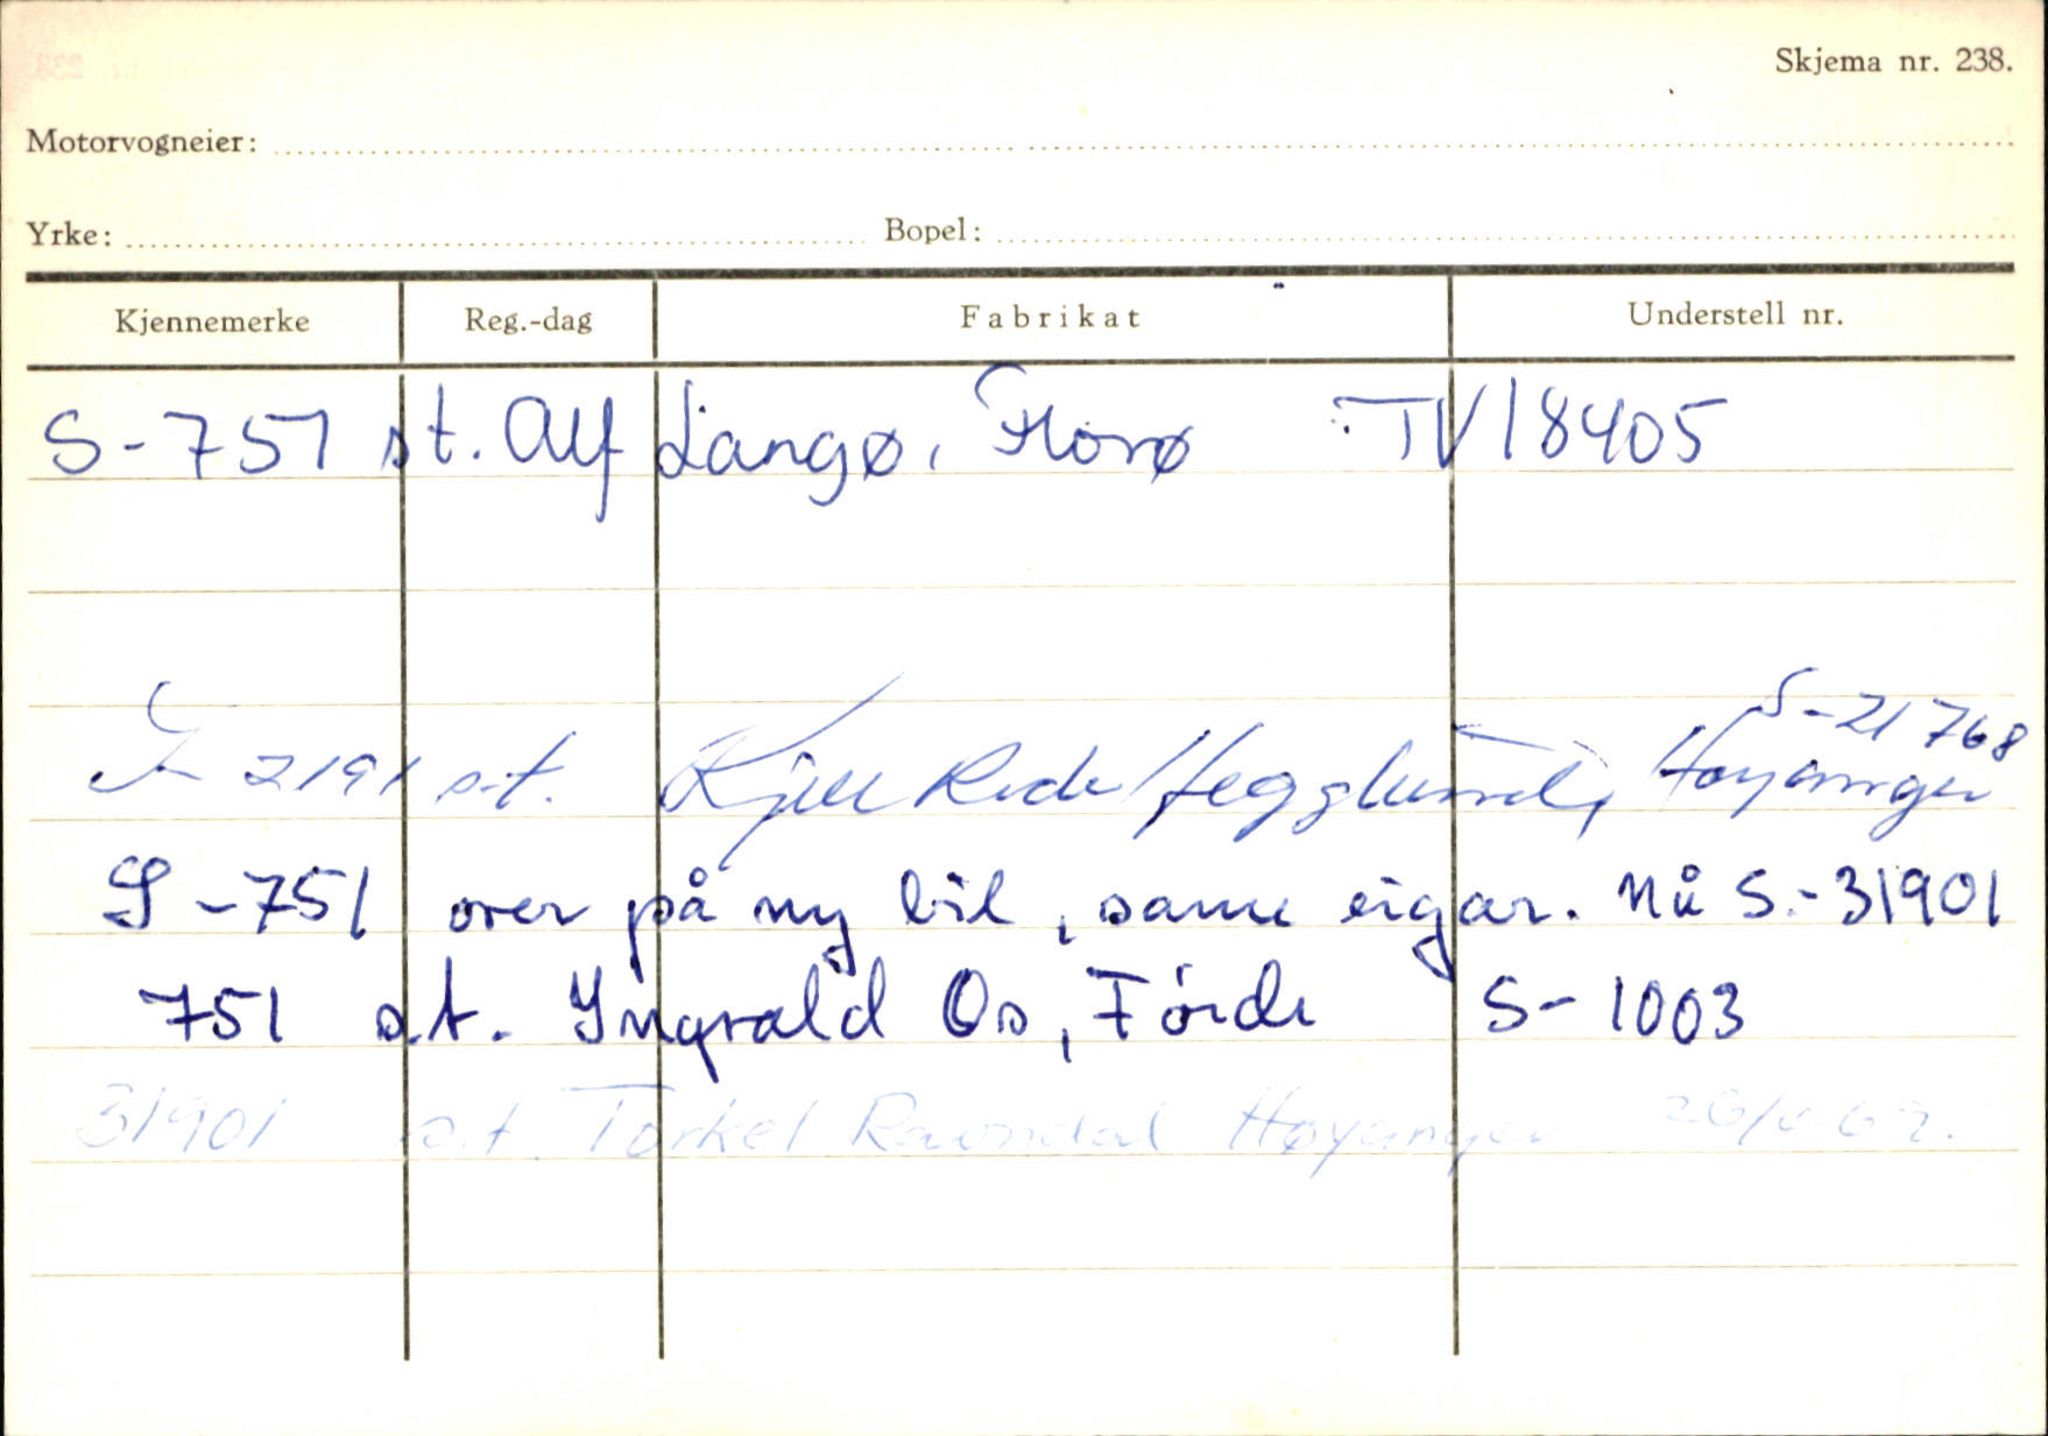 Skjema nr. 238.
Motorvogneier:
Yrke: Bopel:
Kjennemerke Reg.-dag Fabrikat Understell nr.
S-751 st. Alf Langø, Florø TV 18405
S-21768
2191 s.t. Kjell Hegglund, Høyanger
S-751 over på ny bil, same eigar. Nå S.-31901
751 s.t. Ingvald Os, Förde S-1003
31901 s.t. Torkel Høyanger